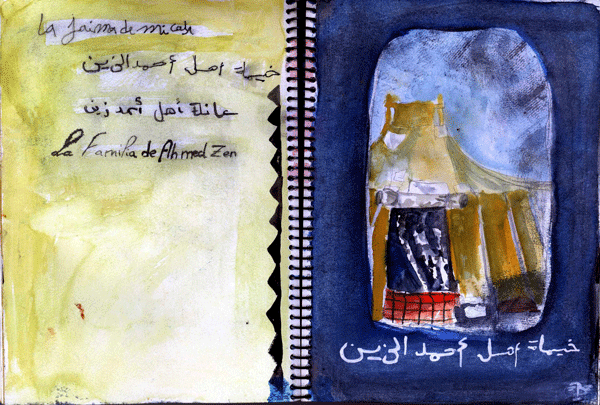 La Jaima de mi casa
خيمة أهل أحمد الزين
عائلة أهل أحمد زين
La Familia de Ahmed Zen
خيمة أهل أحمد الزين